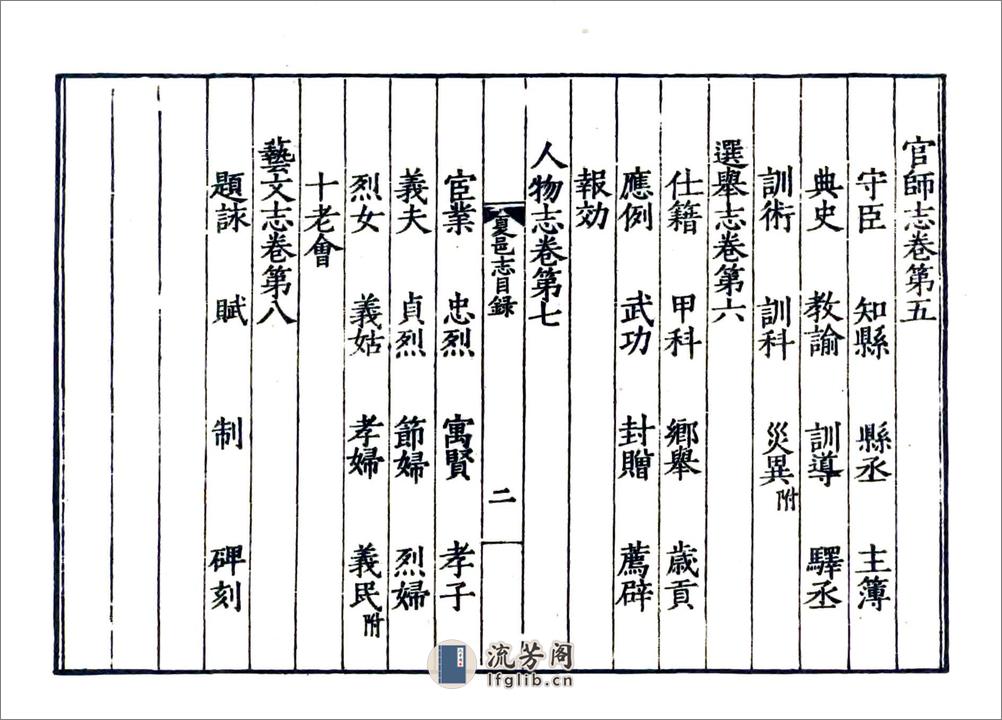 官師志卷第五
守臣 知縣 縣丞 主簿
典史 教諭 訓導 驛丞
訓術 訓科 災異附
選舉志卷第六
仕籍 甲科 鄉舉 歲貢
應例 武功 封贈 薦辟
報効
人物志卷第七
夏邑志目錄 二
宦業 忠烈 寓賢 孝子
義夫 貞烈 節婦 烈婦
烈女 義姑 孝婦 義民附
十老會
藝文志卷第八
題詠 賦 制 碑刻
流芳阁
lfglib.cn